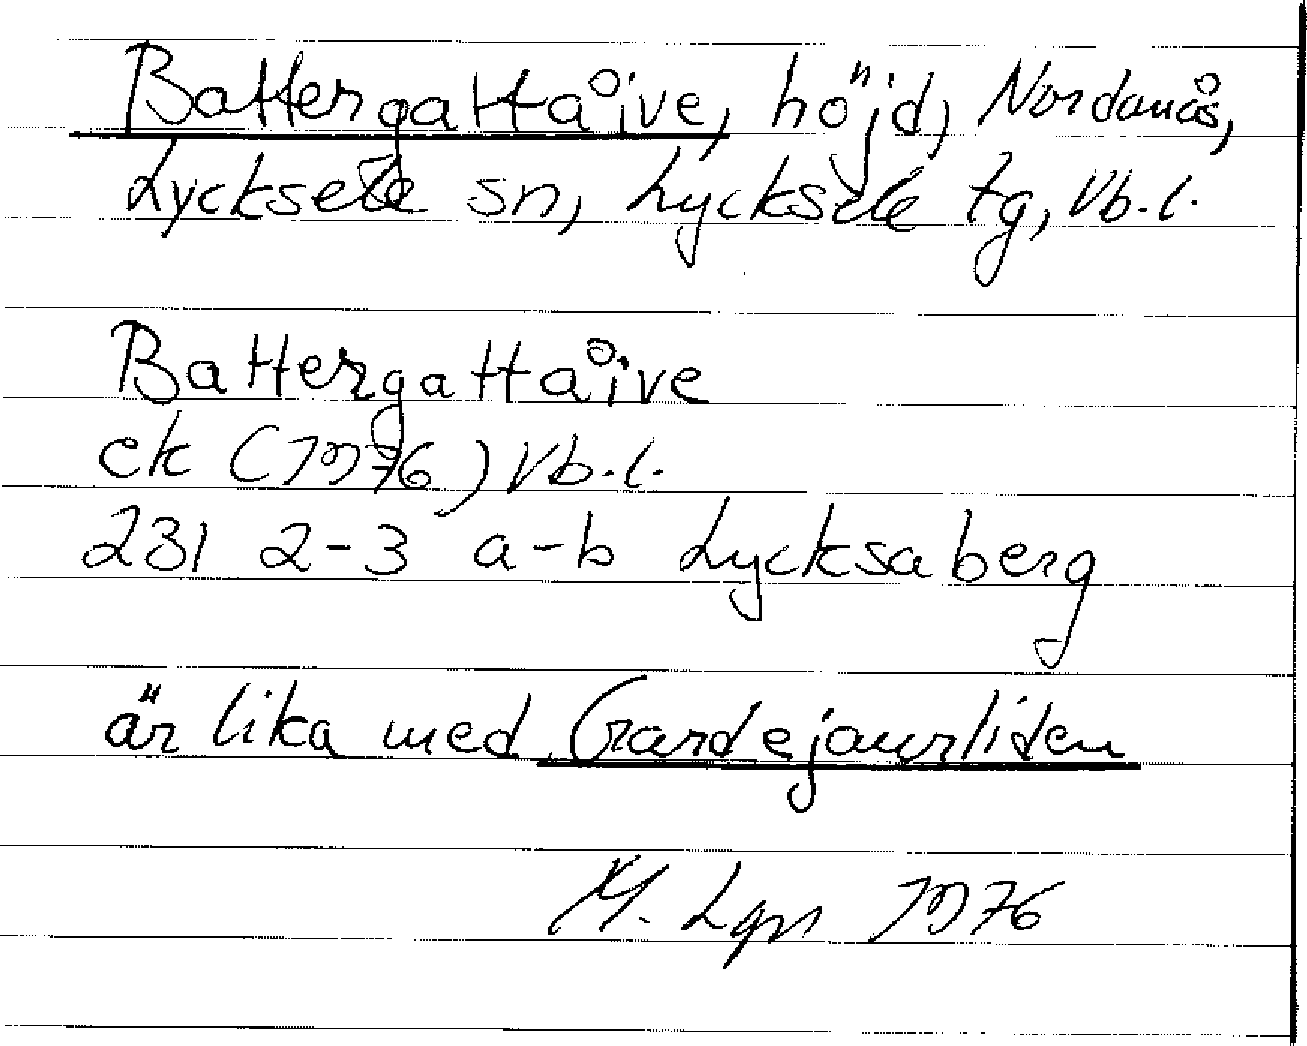 Battergattåive, höjd, Nordanås,
Lycksele sn, Lycksele tg, Vb.l.
Battergattåive
ek (1976) Vb.l.
23I 2-3 a-b Lycksaberg
är lika med Gardejaurliden
1976